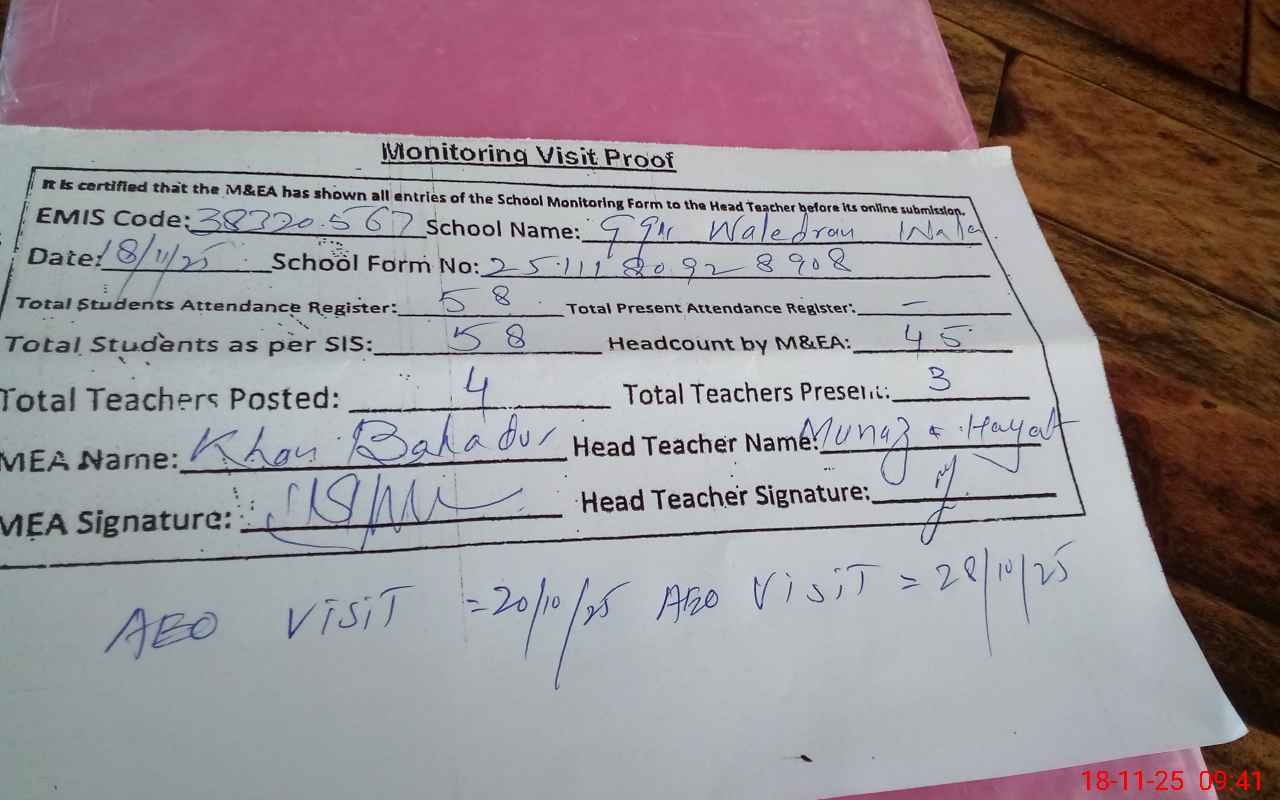 Monitoring Visit Proof
It is certified that the M&EA has shown all entries of the School Monitoring Form to the Head Teacher before its online submission.
EMIS Code: 38320567 School Name: Waledran Wala
Date: 18/11/25 School Form No: 25111 80928908
Total Students Attendance Register: 58 Total Present Attendance Register: —
Total Students as per SIS: 58 Headcount by M&EA: 45
Total Teachers Posted: 4 Total Teachers Present: 3
MEA Name: Khan Bahadur Head Teacher Name: Munaza Hayat
MEA Signature: Head Teacher Signature:
AEO VISIT = 20/10/25 AEO VISIT = 28/10/25
18-11-25 09:41